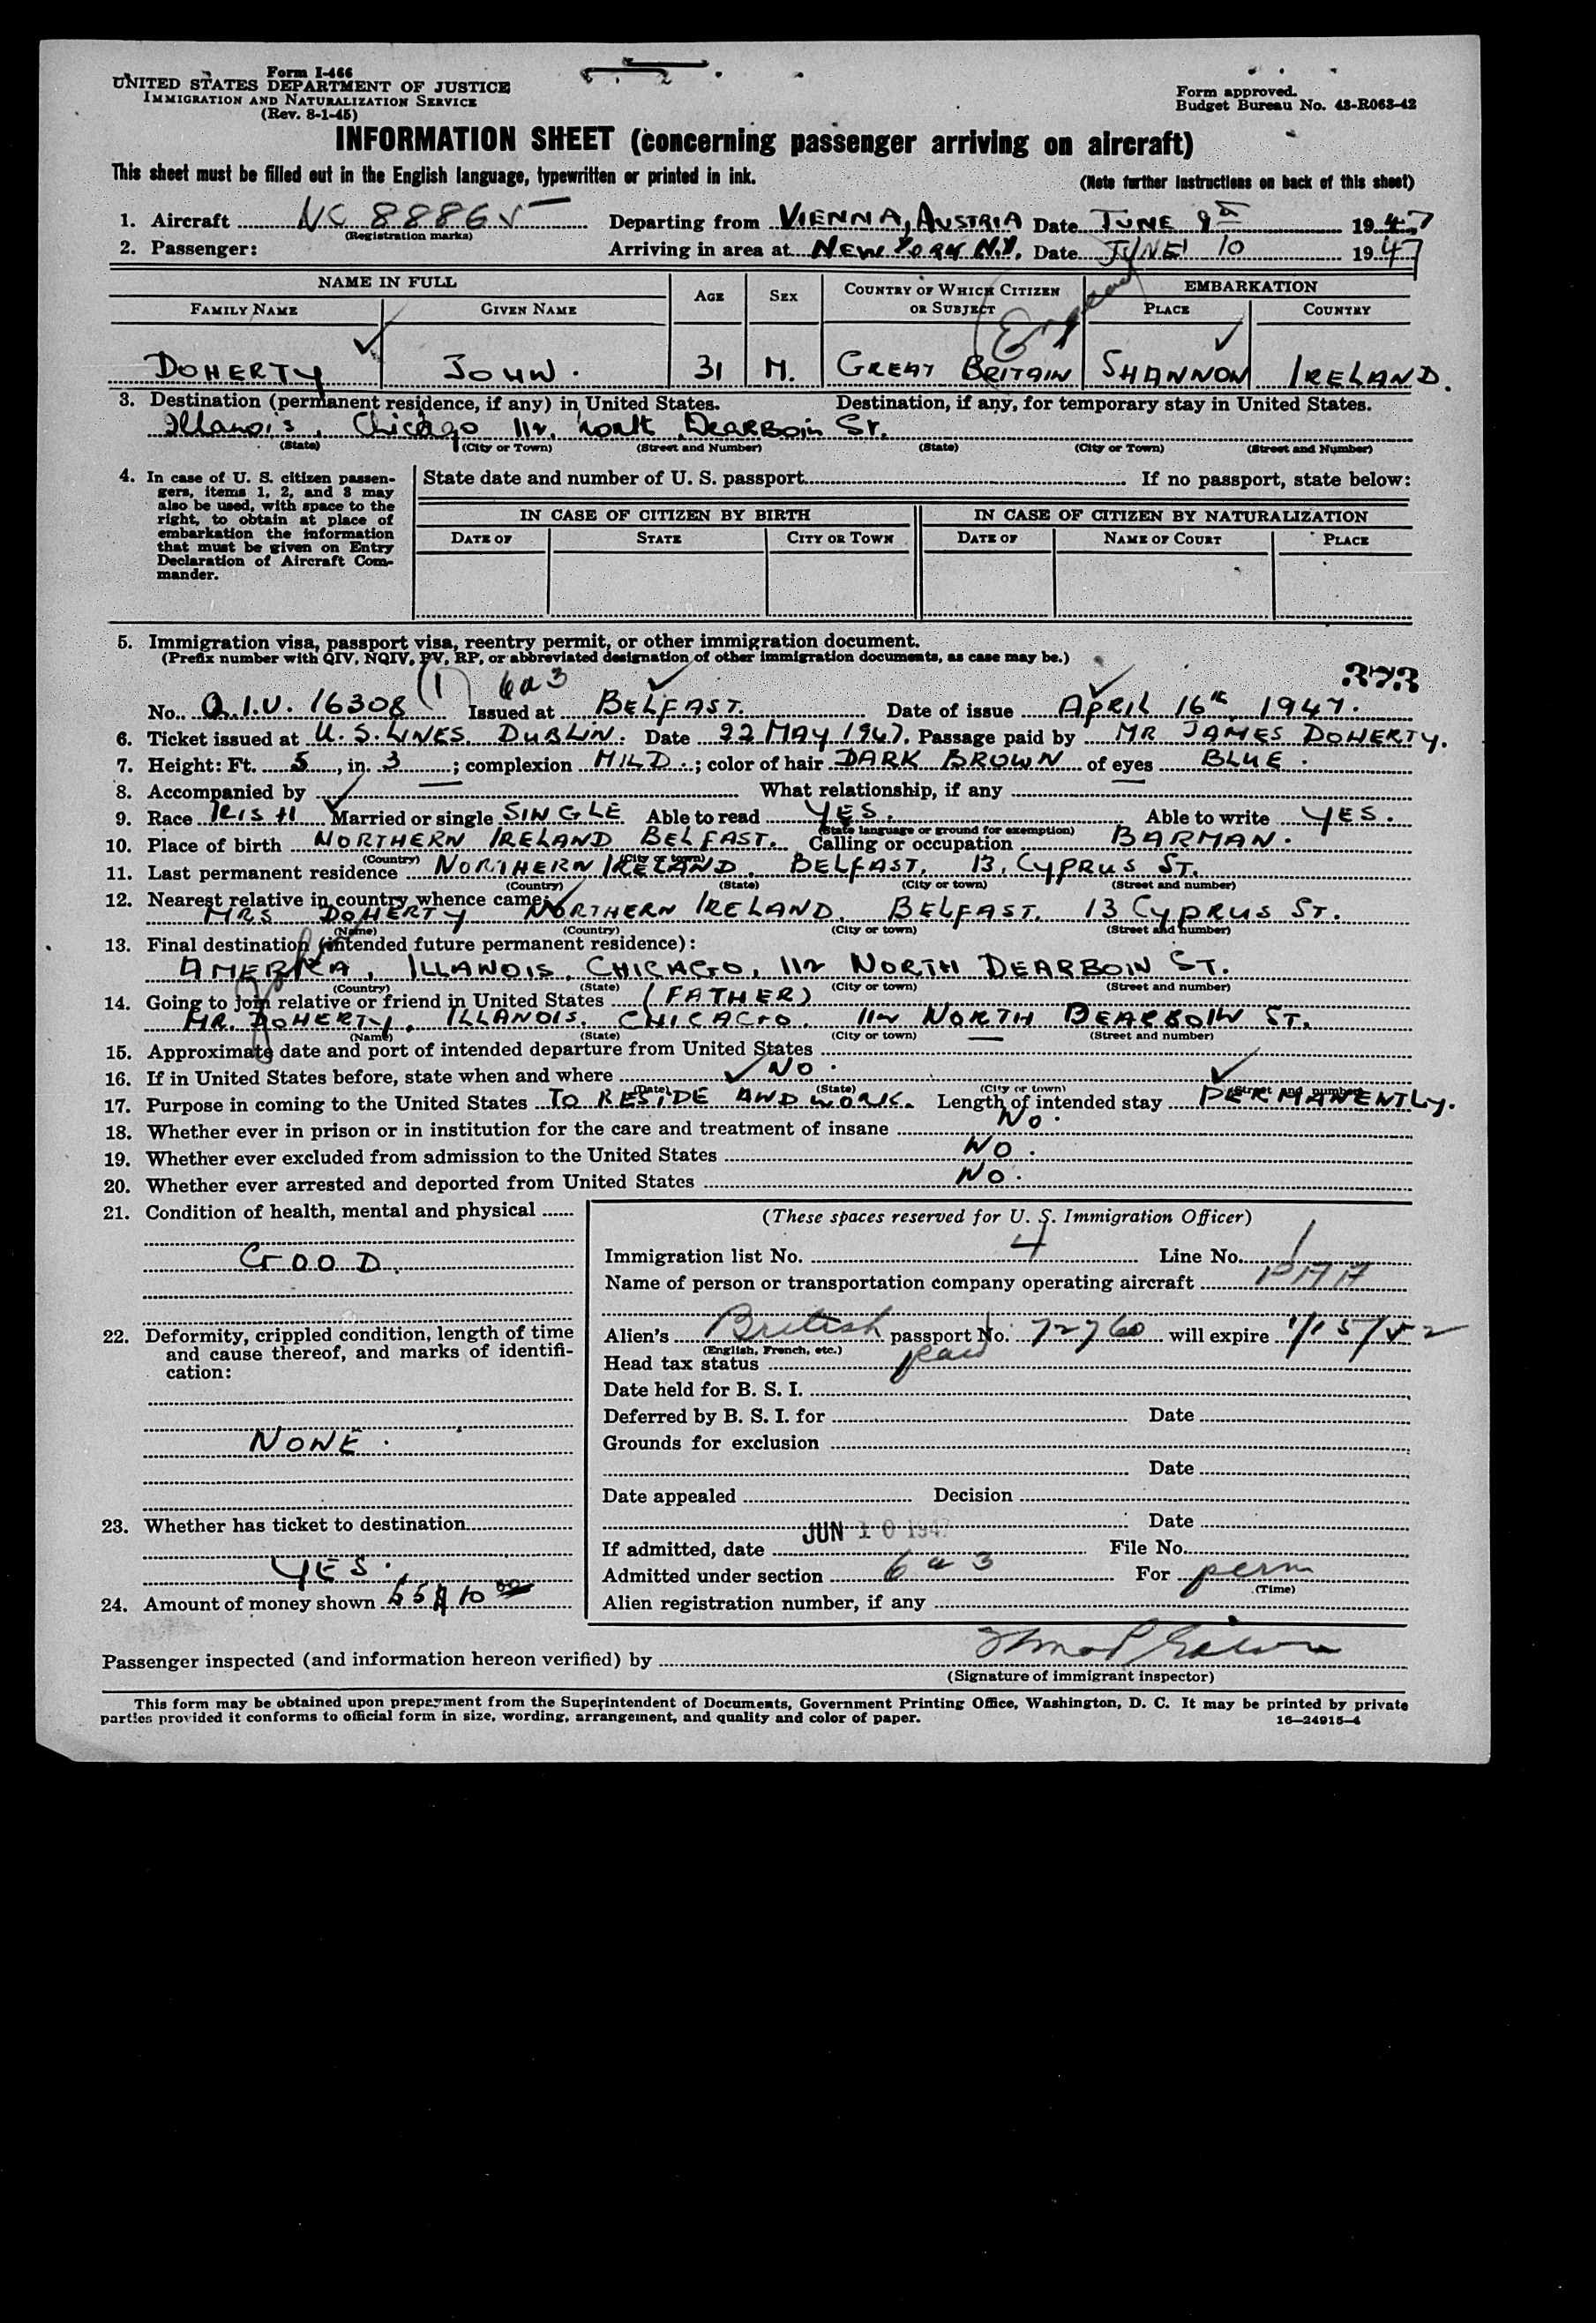 Form I-466
UNITED STATES DEPARTMENT OF JUSTICE
IMMIGRATION AND NATURALIZATION SERVICE
(Rev. 8-1-45)
Form approved.
Budget Bureau No. 43-R063-42
INFORMATION SHEET (concerning passenger arriving on aircraft)
This sheet must be filled out in the English language, typewritten or printed in ink.
(Note further instructions on back of this sheet)
1. Aircraft NC 88865 Departing from VIENNA, AUSTRIA Date JUNE 9th 1947
(Registration marks)
2. Passenger: Arriving in area at NEW YORK N.Y. Date JUNE 10 1947
NAME IN FULL AGE SEX COUNTRY OF WHICH CITIZEN OR SUBJECT EMBARKATION
FAMILY NAME GIVEN NAME PLACE COUNTRY
DOHERTY JOHN. 31 M. GREAT BRITAIN SHANNON IRELAND.
3. Destination (permanent residence, if any) in United States. Destination, if any, for temporary stay in United States.
Illanois, Chicago 112, North DEARBOIN ST.
(State) (City or Town) (Street and Number) (State) (City or Town) (Street and Number)
4. In case of U. S. citizen passengers, items 1, 2, and 3 may also be used, with space to the right, to obtain at place of embarkation the information that must be given on Entry Declaration of Aircraft Commander.
State date and number of U. S. passport If no passport, state below:
IN CASE OF CITIZEN BY BIRTH IN CASE OF CITIZEN BY NATURALIZATION
DATE OF STATE CITY OR TOWN DATE OF NAME OF COURT PLACE
5. Immigration visa, passport visa, reentry permit, or other immigration document.
(Prefix number with QIV, NQIV, PV, RP, or abbreviated designation of other immigration documents, as case may be.)
373
(1) 6a3
No. Q.I.V. 16308 Issued at BELFAST. Date of issue APRIL 16th, 1947.
6. Ticket issued at U.S. LINES. DUBLIN. Date 22 MAY 1947. Passage paid by MR JAMES DOHERTY.
7. Height: Ft. 5, in. 3; complexion MILD.; color of hair DARK BROWN of eyes BLUE.
8. Accompanied by — What relationship, if any —
9. Race IRISH Married or single SINGLE Able to read YES. Able to write YES.
(State language or ground for exemption)
10. Place of birth NORTHERN IRELAND BELFAST. Calling or occupation BARMAN.
(Country) (City or town)
11. Last permanent residence NORTHERN IRELAND. BELFAST. 13, CYPRUS ST.
(Country) (State) (City or town) (Street and number)
12. Nearest relative in country whence came:
MRS DOHERTY NORTHERN IRELAND. BELFAST. 13 CYPRUS ST.
(Name) (Country) (City or town) (Street and number)
13. Final destination (intended future permanent residence):
AMERICA, ILLANOIS, CHICAGO, 112 NORTH DEARBOIN ST.
(Country) (State) (City or town) (Street and number)
14. Going to join relative or friend in United States (FATHER)
MR. DOHERTY, ILLANOIS, CHICAGO. 112 NORTH DEARBOIN ST.
(Name) (State) (City or town) (Street and number)
15. Approximate date and port of intended departure from United States —
16. If in United States before, state when and where NO.
(Date) (State) (City or town) (Street and number)
17. Purpose in coming to the United States TO RESIDE AND WORK. Length of intended stay PERMANENTLY.
18. Whether ever in prison or in institution for the care and treatment of insane NO.
19. Whether ever excluded from admission to the United States NO.
20. Whether ever arrested and deported from United States NO.
21. Condition of health, mental and physical
GOOD.
22. Deformity, crippled condition, length of time and cause thereof, and marks of identification:
NONE.
23. Whether has ticket to destination
YES.
24. Amount of money shown
(These spaces reserved for U. S. Immigration Officer)
Immigration list No. 4 Line No. 1
Name of person or transportation company operating aircraft PAA
Alien's British passport No. 72760 will expire 1/15/52
(English, French, etc.)
Head tax status paid
Date held for B. S. I.
Deferred by B. S. I. for Date
Grounds for exclusion
Date
Date appealed Decision
Date
If admitted, date JUN 10 1947 File No.
Admitted under section 6 a 3 For perm
(Time)
Alien registration number, if any
Passenger inspected (and information hereon verified) by
(Signature of immigrant inspector)
This form may be obtained upon prepayment from the Superintendent of Documents, Government Printing Office, Washington, D. C. It may be printed by private
parties provided it conforms to official form in size, wording, arrangement, and quality and color of paper.
16—24915-4